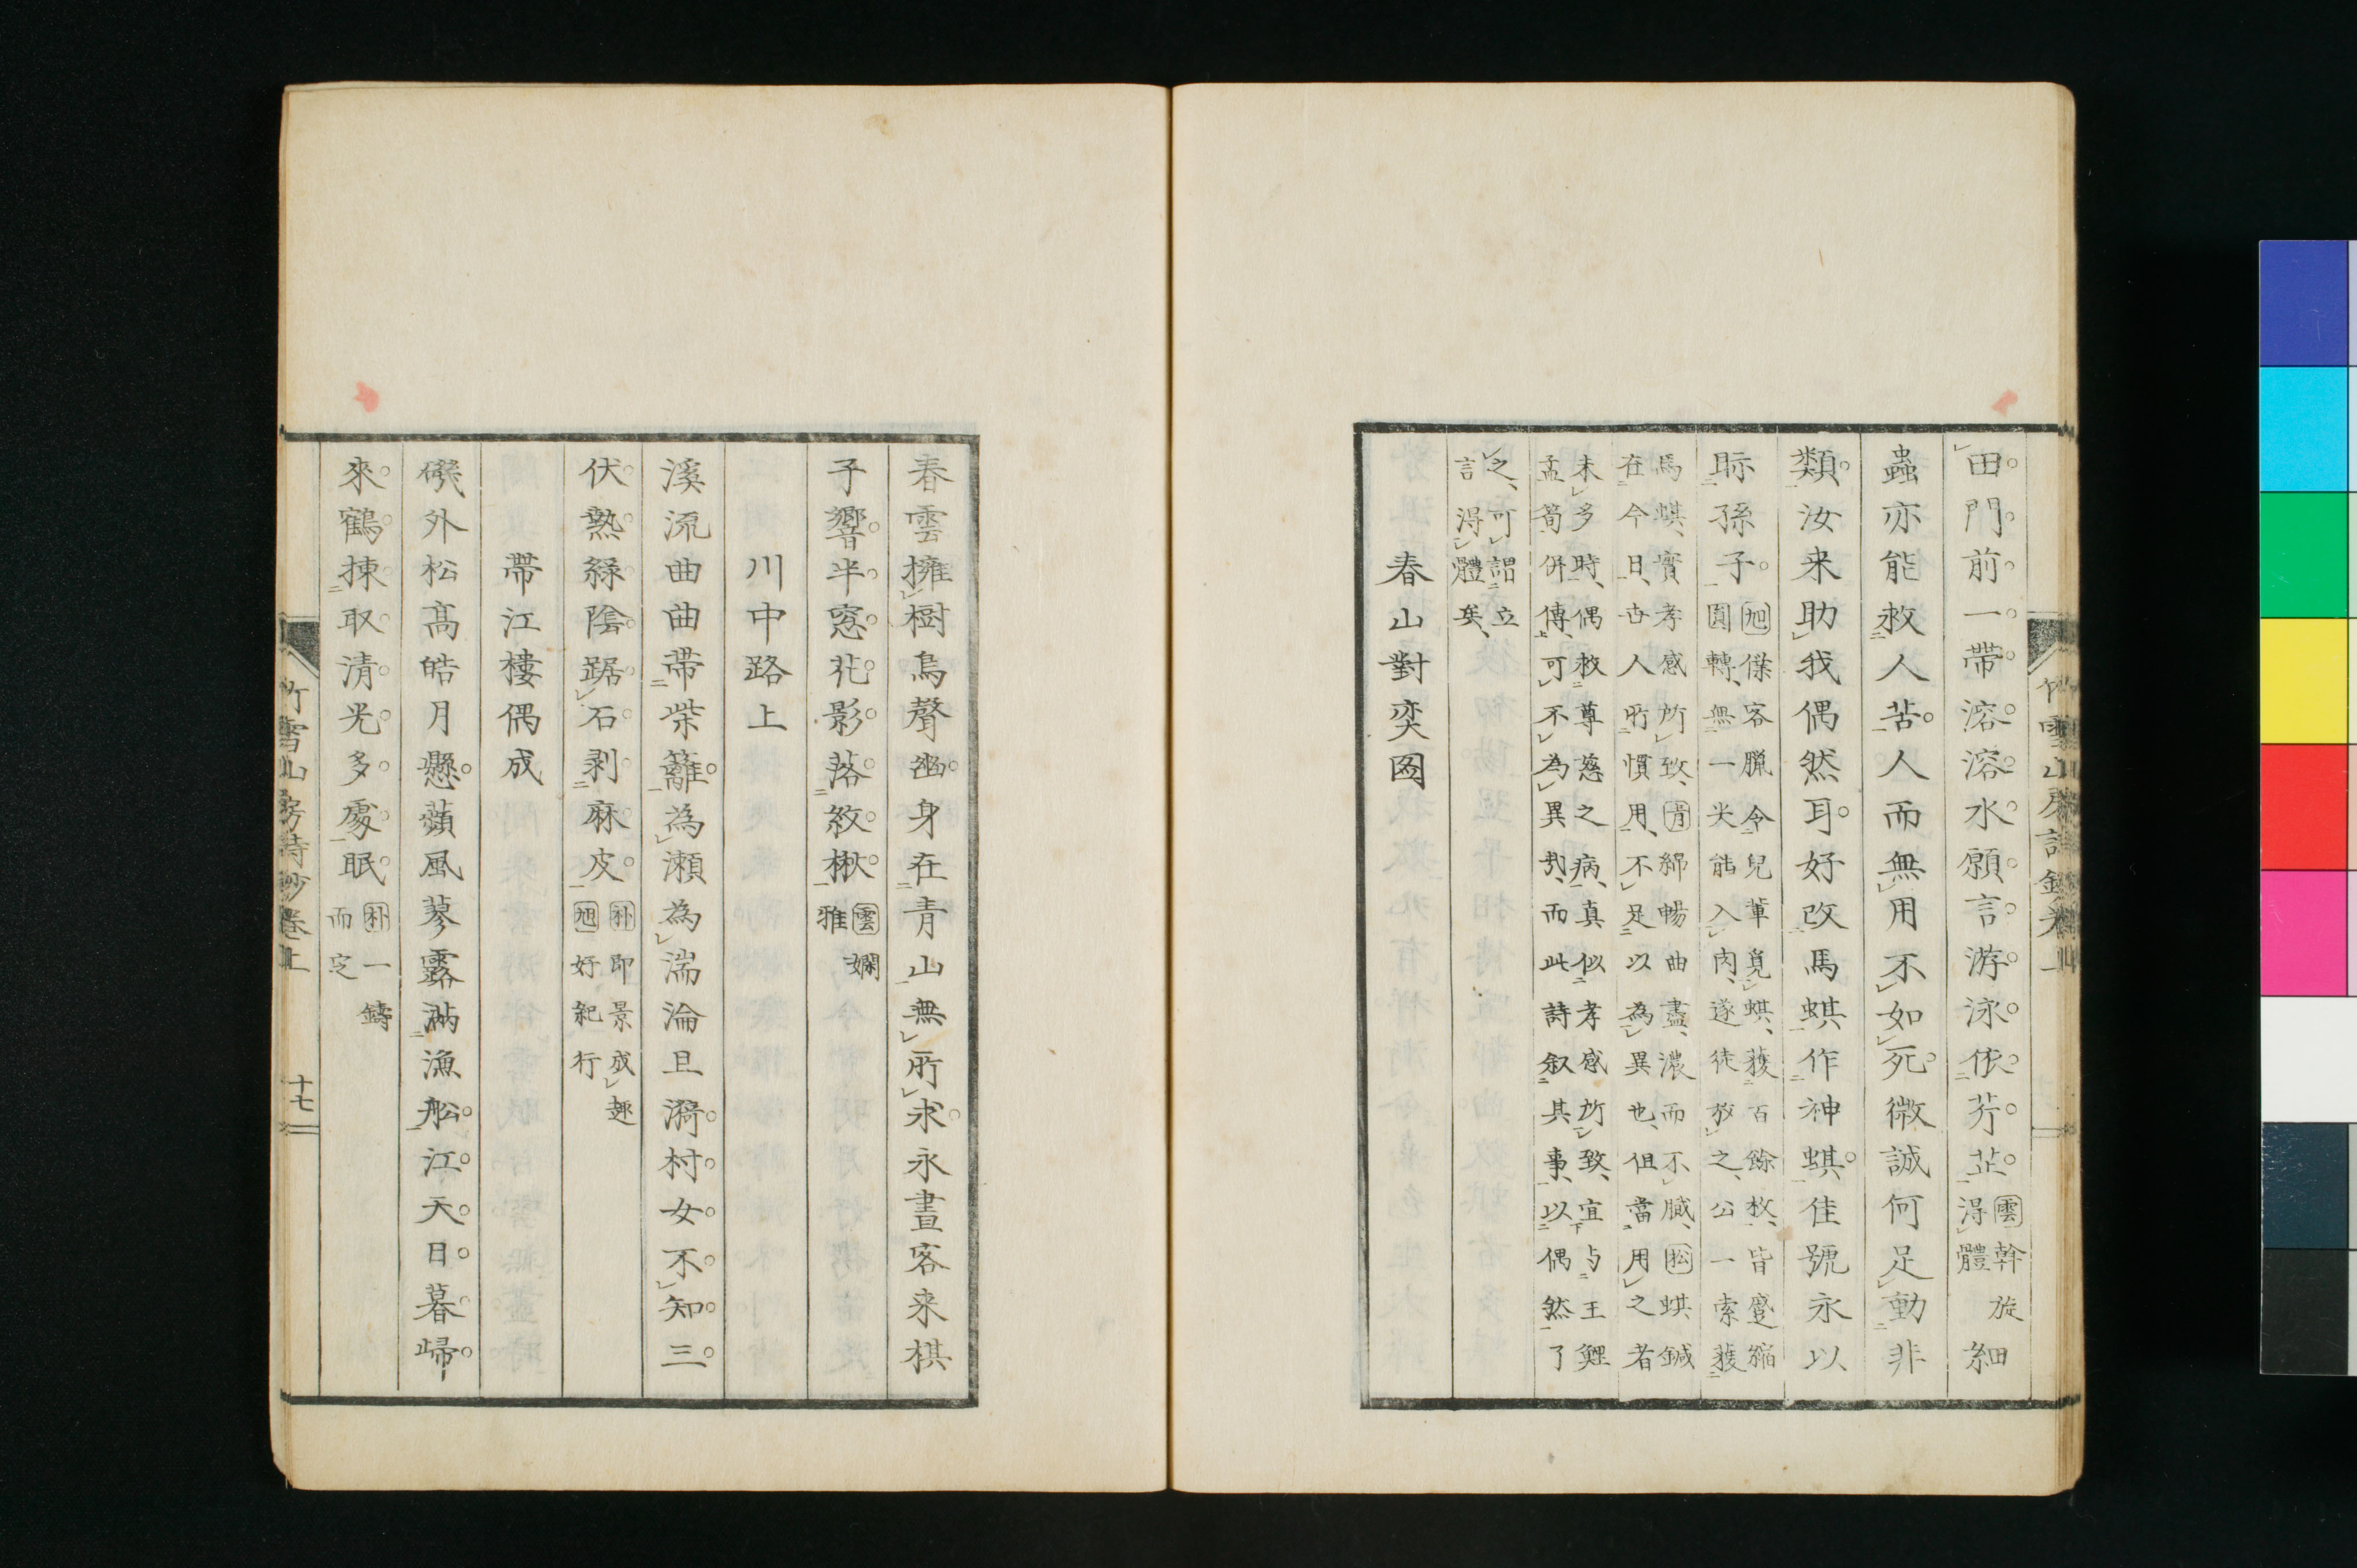 田門前一帶溶溶水願言游泳依芹芷
雲幹旋
得體
細
蟲亦能救人苦人而無用不如死微誠何足動非
類汝来助我偶然耳好改馬蜞作神蜞佳號永以
眎孫子
旭僕客臘令兒輩覓蜞獲百餘枚皆蹙縮
圓轉無一尖能入肉遂徒放之公一索獲
馬蜞實孝感所致青綿暢曲盡濃而不膩松蜞鍼
在今日古人所慣用不足以為異也但當用之者
未多時偶救尊慈之病真似孝感所致宜与王鯉
孟筍併傳可不為異哉而此詩叙其事以偶然了
之可謂立
言得體矣
春山對奕図
春雲擁樹鳥聲幽身在青山無所求永晝客来棋
子響半窓花影落紋楸
雲嫻
雅
川中路上
溪流曲曲帶柴籬為瀬為湍淪且漪村女不知三
伏熱緑陰踞石剥麻皮
朴即景成趣
旭好紀行
帶江樓偶成
磯外松高皓月懸蘋風蓼露滿漁船江天日暮歸
來鶴揀取清光多處眠
朴一鑄
而定
竹雪山房詩鈔卷上
十七